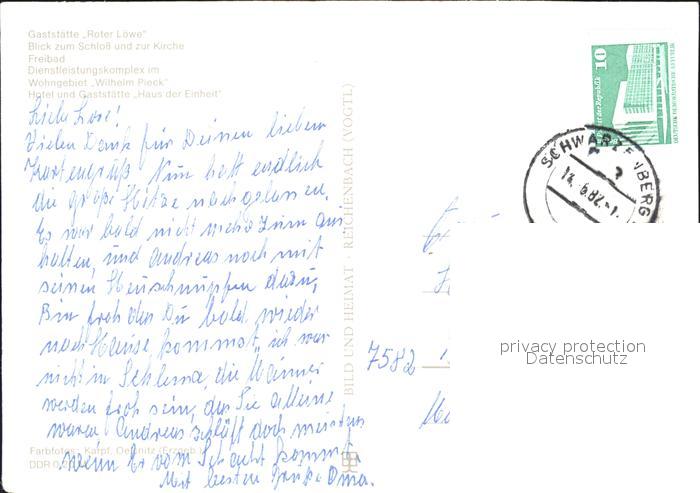 Gaststätte „Roter Löwe"
Blick zum Schloß und zur Kirche
Freibad
Dienstleistungskomplex im
Wohngebiet „Wilhelm Pieck"
Hotel und Gaststätte „Haus der Einheit"
Liebe
Vielen Dank für Deinen lieben
Kartengruß Nun hatt endlich
die große Hitze nachgelassen.
Es war bald nicht mehr zum aus
halten, und Andreas noch mit
seinen Heuschnupfen dazu,
Bin froh das Du bald wieder
nach Hause kommst, ich war
nicht in Schlema, die Männer
werden froh sein, das Sie alleine
waren Andreas schläft doch meistens
wenn Er vom Schacht kommt
Mit besten Oma.
Farbfotos: Karpf, Oelsnitz (Erzgeb.)
DDR
BILD UND HEIMAT · REICHENBACH (VOGTL)
10
DEUTSCHE DEMOKRATISCHE REPUBLIK
SCHWARZENBERG
14.6.82
7582
privacy protection
Datenschutz